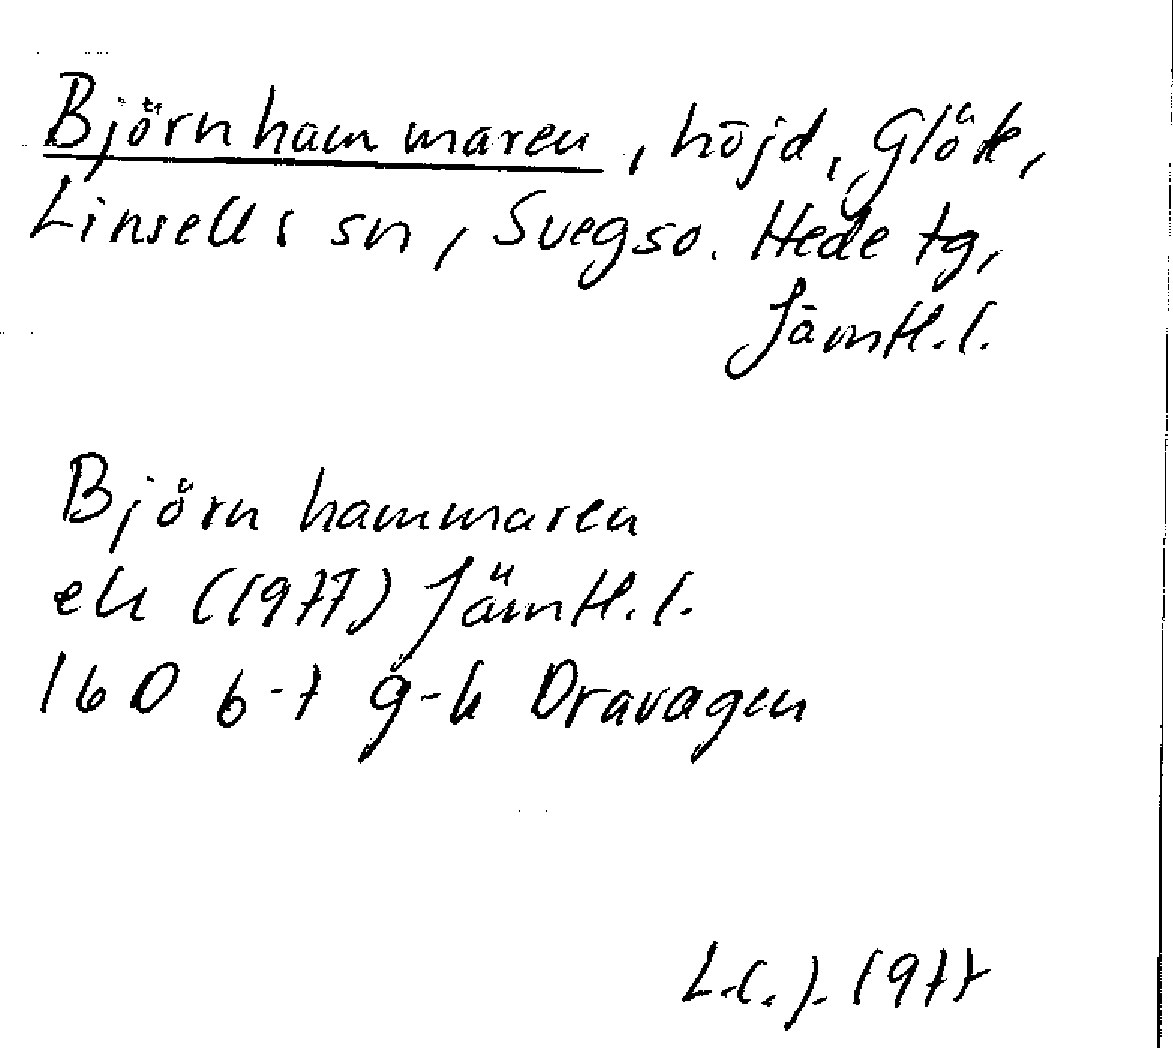 Björnhammaren, höjd, Glöte,
Linsells sn, Svegs o. Hede tg,
Jämtl.l.
Björnhammaren
ek (1977) Jämtl.l.
16D 6-7 g-h Dravagen
1977